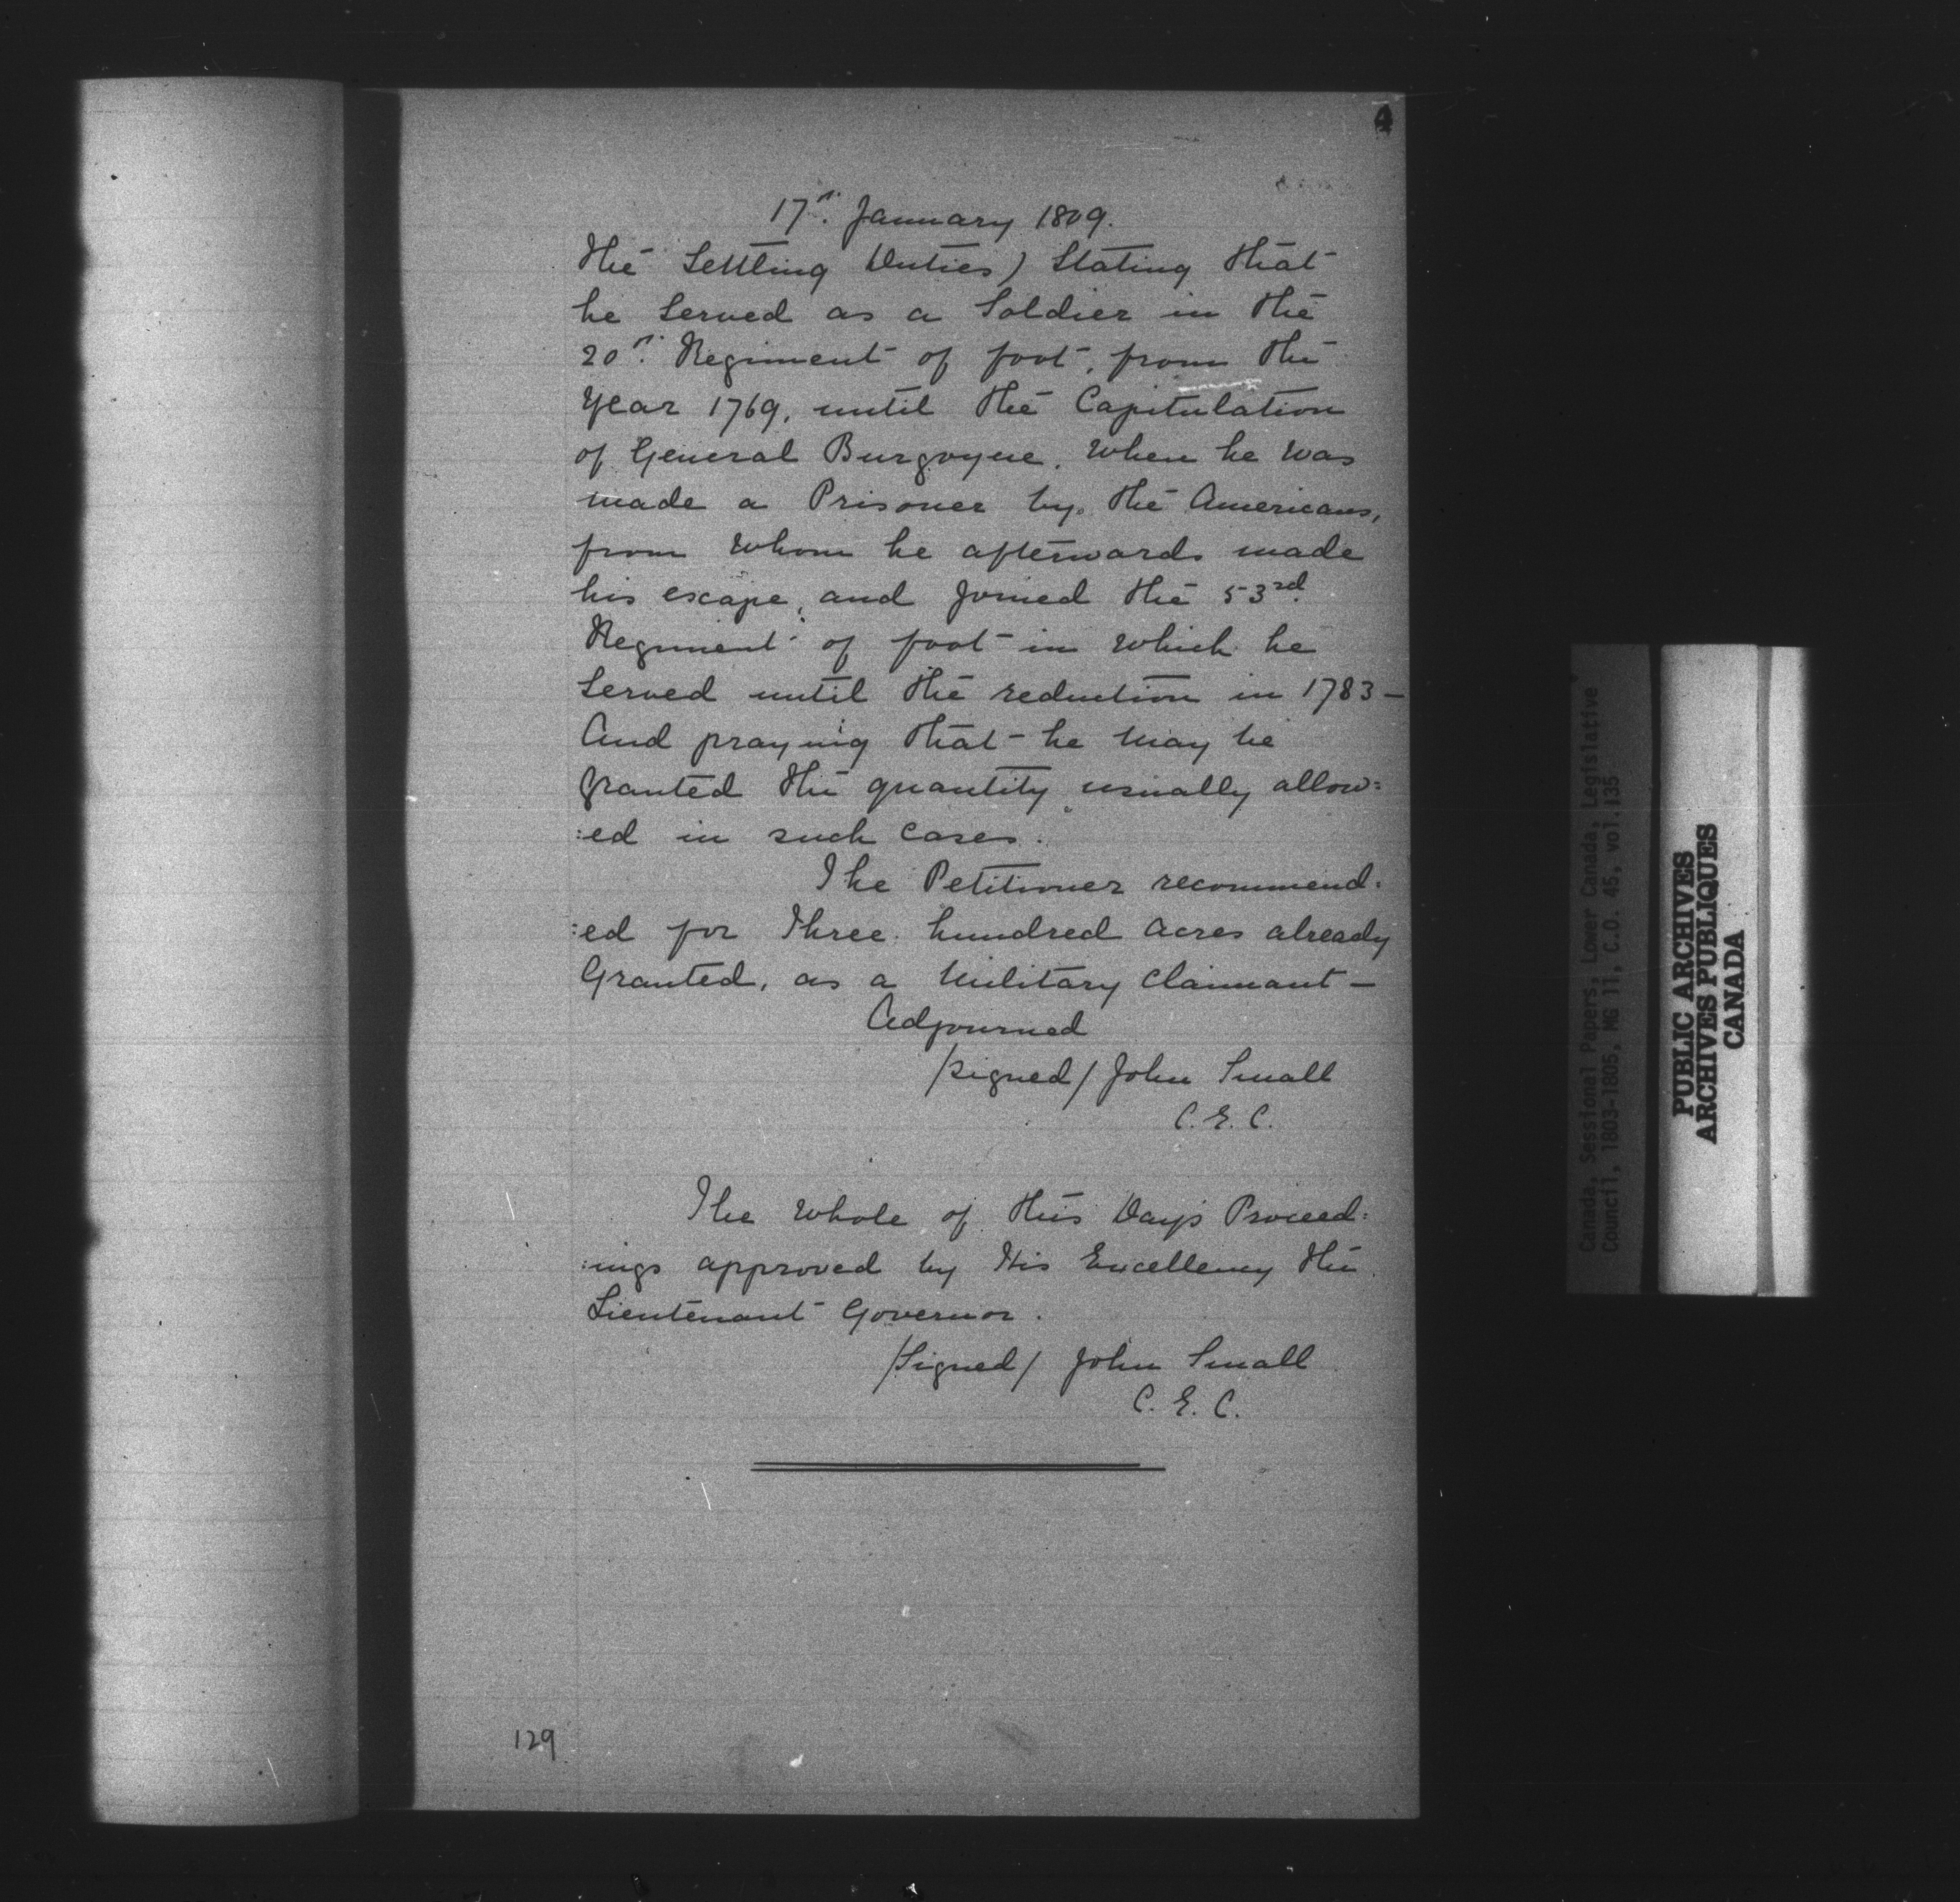 4
17th. January 1809.
the Settling Duties) Stating that
he Served as a Soldier in the
20th. Regiment of foot, from the
Year 1769, until the Capitulation
of General Burgoyne, When he was
made a Prisoner by the Americans,
from Whom he afterwards made
his escape, and Joined the 53rd.
Regiment of foot in Which he
Served until the reduction in 1783 —
And praying that he May be
granted the quantity usually allow:
:ed in such Cases.
The Petitioner recommend:
:ed for Three hundred Acres already
Granted, as a Military Claimant —
Adjourned
/signed/ John Small
C. E. C.
The Whole of this Day's Proceed:
:ings approved by His Excellency the
Lieutenant Governor.
/Signed/ John Small
C. E. C.
129
Canada, Sessional Papers, Lower Canada, Legislative
Council, 1803-1805, MG 11, C.O. 45, vol.135
PUBLIC ARCHIVES
ARCHIVES PUBLIQUES
CANADA